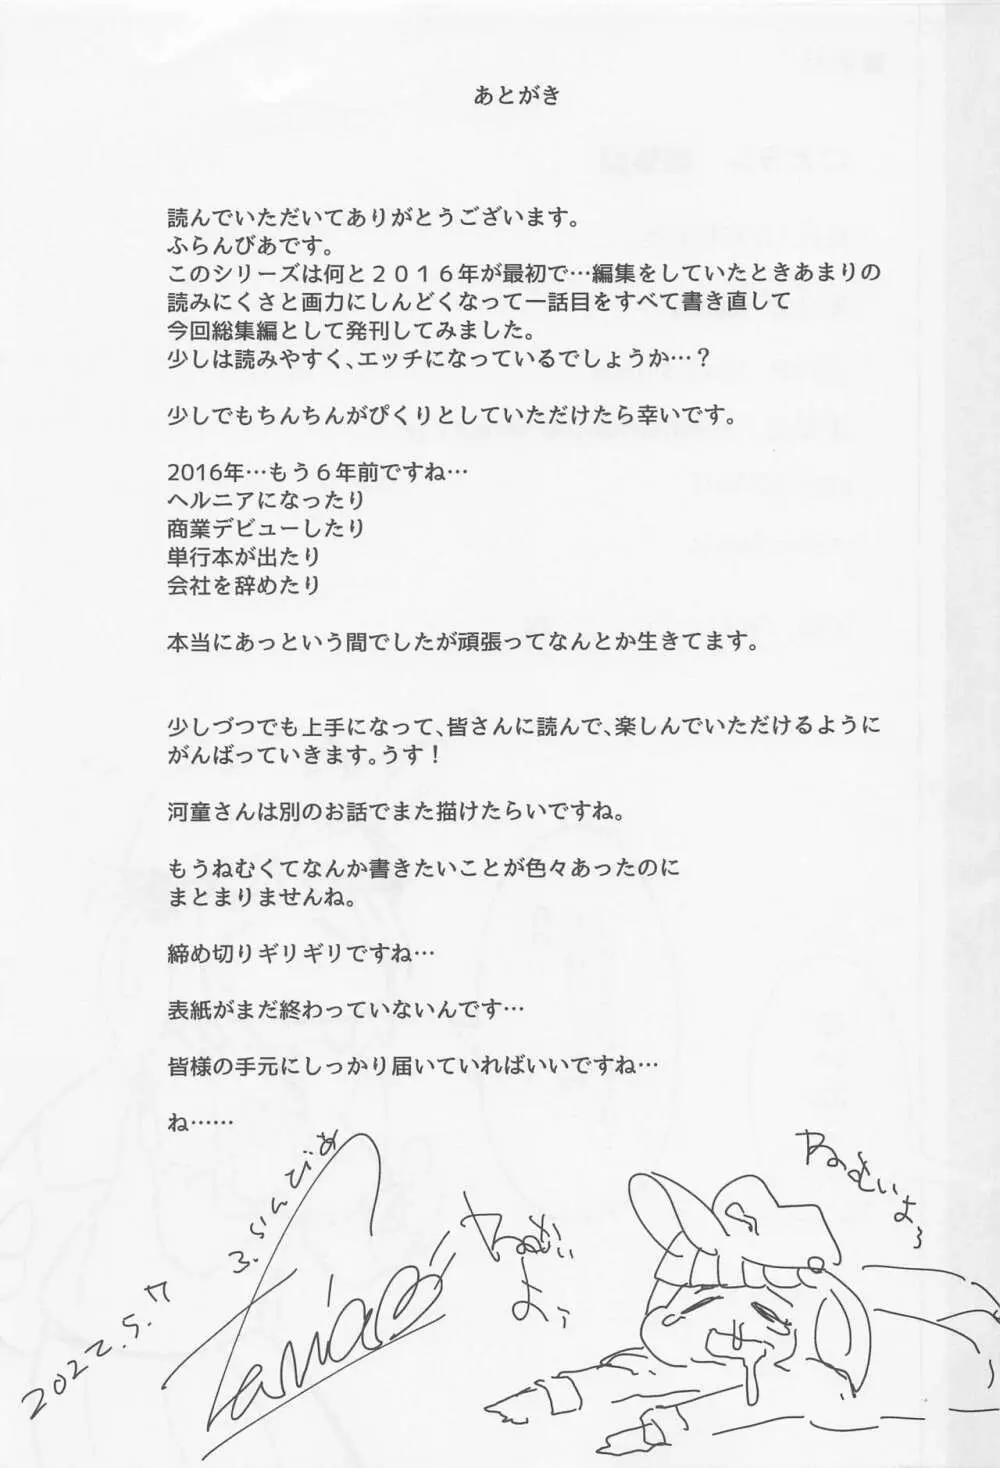 あとがき
読んでいただいてありがとうございます。
ふらんびあです。
このシリーズは何と２０１６年が最初で…編集をしていたときあまりの
読みにくさと画力にしんどくなって一話目をすべて書き直して
今回総集編として発刊してみました。
少しは読みやすく、エッチになっているでしょうか…？
少しでもちんちんがぴくりとしていただけたら幸いです。
2016年…もう６年前ですね…
ヘルニアになったり
商業デビューしたり
単行本が出たり
会社を辞めたり
本当にあっという間でしたが頑張ってなんとか生きてます。
少しづつでも上手になって、皆さんに読んで、楽しんでいただけるように
がんばっていきます。うす！
河童さんは別のお話でまた描けたらいですね。
もうねむくてなんか書きたいことが色々あったのに
まとまりませんね。
締め切りギリギリですね…
表紙がまだ終わっていないんです…
皆様の手元にしっかり届いていればいいですね…
ね……
2022.5.17
ねむいよぅ
ねむいよぅ